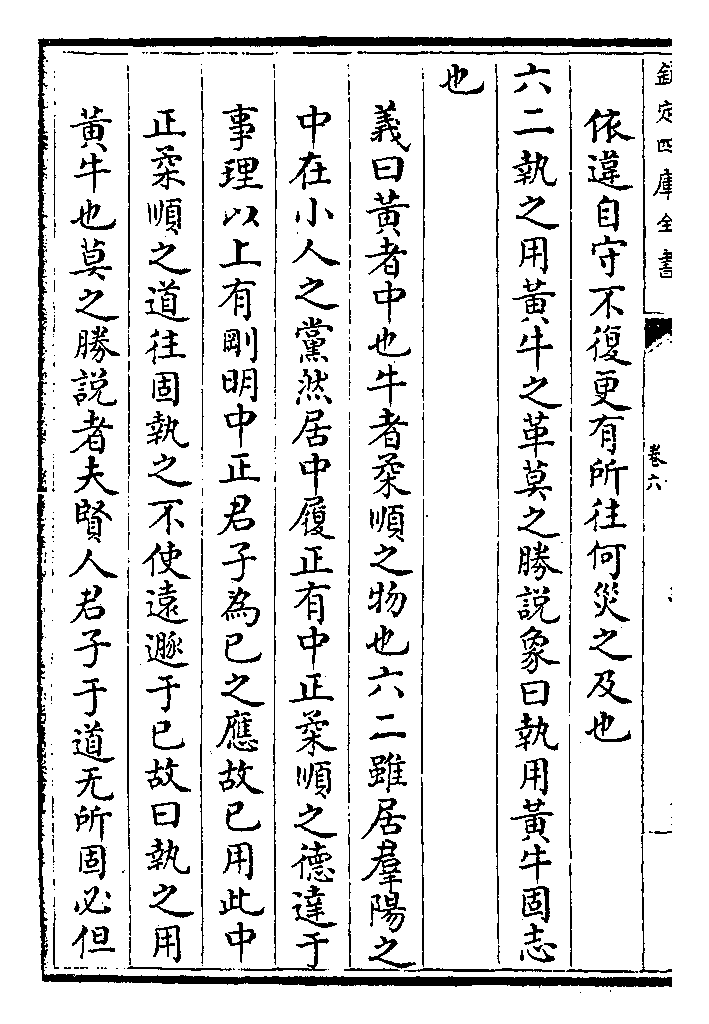 欽定四庫全書
卷六
依違自守不復更有所往何災之及也
六二執之用黃牛之革莫之勝説象曰執用黃牛固志
也
義曰黃者中也牛者柔順之物也六二雖居羣陽之
中在小人之黨然居中履正有中正柔順之德達于
事理以上有剛明中正君子為已之應故已用此中
正柔順之道往固執之不使遠遯于已故曰執之用
黃牛也莫之勝説者夫賢人君子于道无所固必但